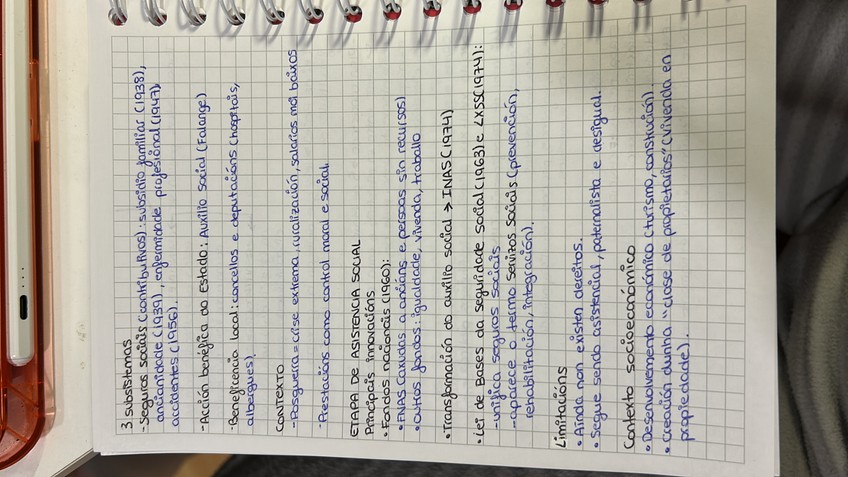 3 subsistemas
-Seguros sociais (contributivos): subsidio familiar (1938),
ancianidade (1939), enfermidade profesional (1947)
accidentes (1956).
-Acción benéfica do Estado: Auxilio Social (Falange)
-Beneficencia local: concellos e deputacións (hospitais,
albergues).
CONTEXTO
-Posguerra = crise extrema, ruralización, salarios moi baixos
-Prestacións como control moral e social.
ETAPA DE ASISTENCIA SOCIAL
Principais innovacións
• Fondos nacionais (1960):
• FNAS (axudas a anciáns e persoas sin recursos)
• Outros fondos: igualdade, vivenda, traballo
• Transformación do auxilio social → INAS (1974)
• Lei de Bases da seguridade social (1963) e LXSS (1974):
-unifica seguros sociais
-aparece o termo servizos sociais (prevención,
rehabilitación, integración).
Limitacións
• Aínda non existen dereitos.
• Segue sendo asistencial, paternalista e desigual.
Contexto socioeconómico
• Desenvolvemento económico (turismo, construción)
• Creación dunha "clase de propietarios" (vivenda en
propiedade).